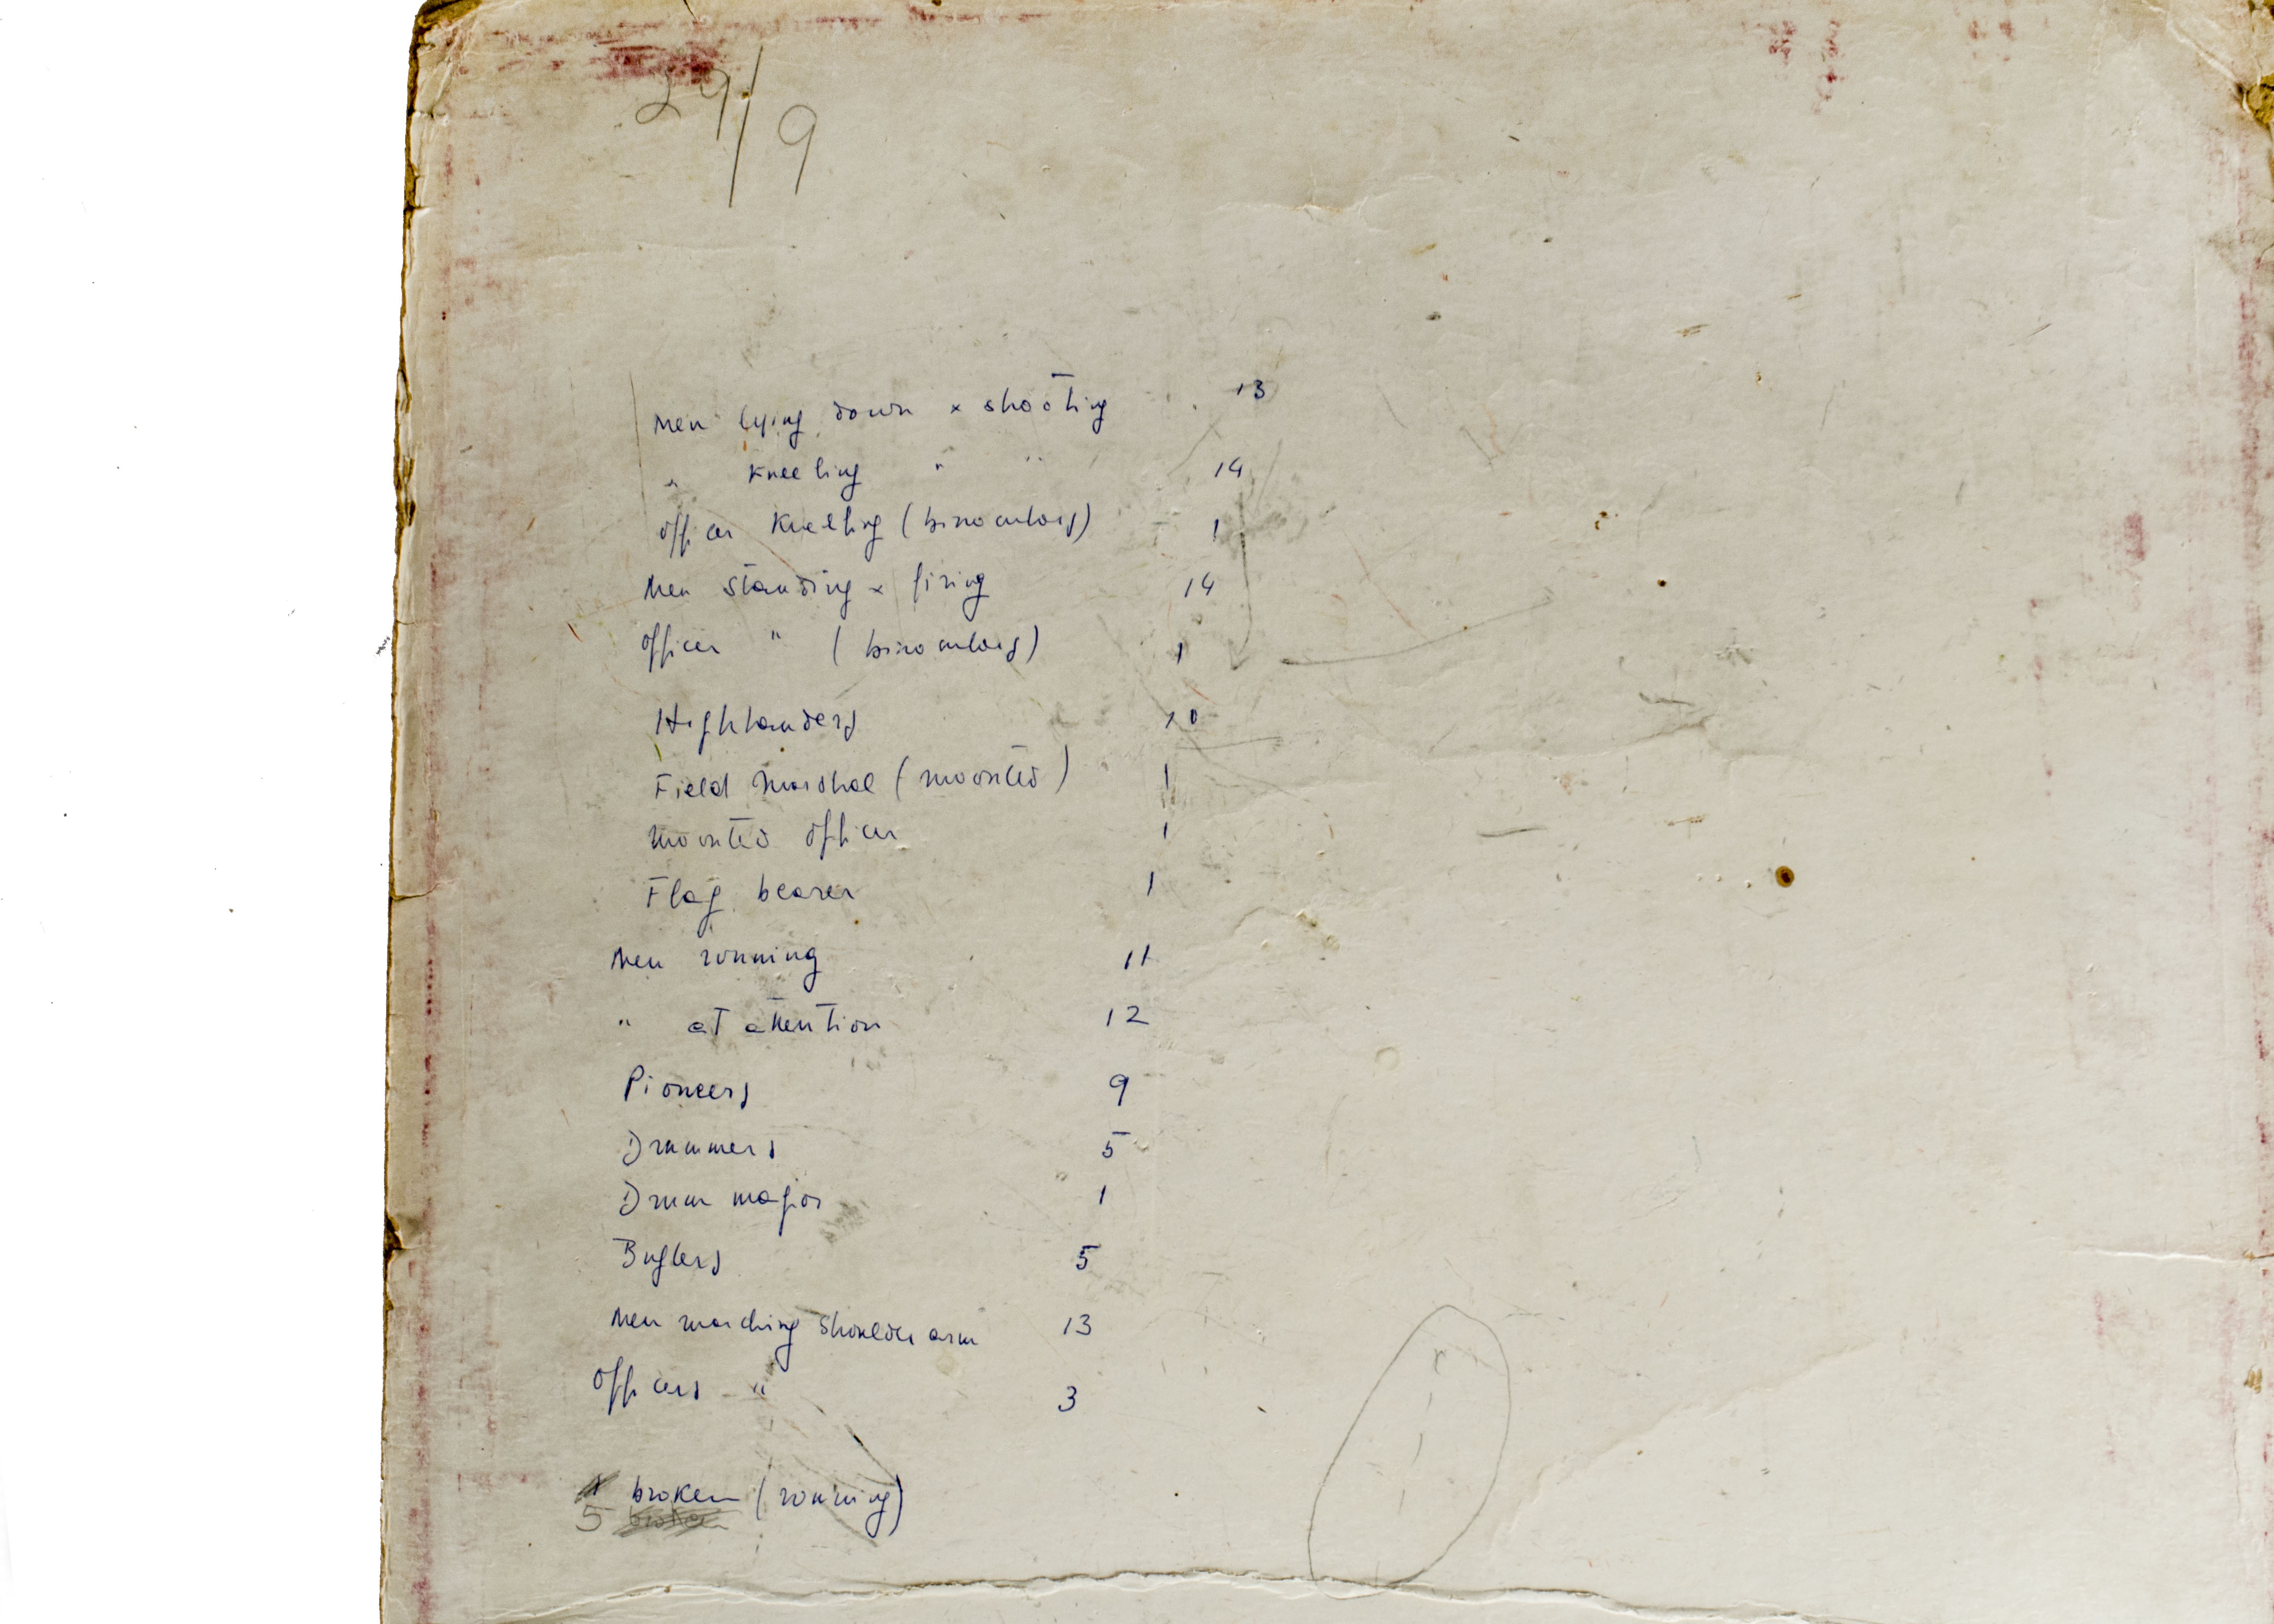 29/9
Men lying down x shooting 13
" Kneeling " " 14
Officer Kneeling (binoculars) 1
Men standing x firing 14
Officer " (binoculars) 1
Highlanders 10
Field Marshal (mounted) 1
Mounted officer 1
Flag bearer 1
Men running 11
" at attention 12
Pioneers 9
Drummers 5
Drum major 1
Buglers 5
Men marching shoulder arm 13
Officers " 3
broken (running)
5 broken